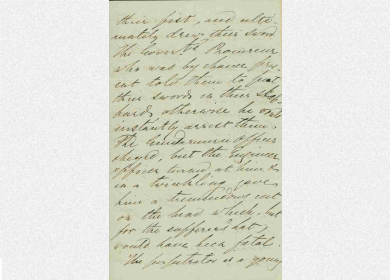 their fist, and ulti-
mately drew their sword
the Govert's Procureur
who was by chance pre-
sent told them to put
their swords in their scab-
bards, otherwise he would
instantly arrest them.
The Gendarmerie officer
obeyed, but the Engineer
officer turned at him &
in a twinkling, gave
him a tremendous cut
on the head which, but
for the sufferer's hat,
would have been fatal.
The perpetrator is a young